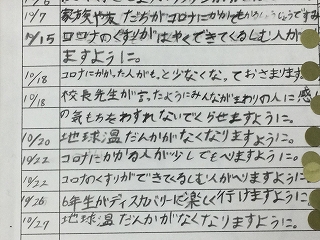 10/7 家族や友だちがコロナにかかりませんように。
10/15 コロナのくすりがはやくできてくるしむ人が
ますように。
10/18 コロナにかかった人がもっと少なくなっておさまります
10/18 校長先生が言ったようにみんながまわりの人に感
の気もちをわすれないでくらせますように。
10/20 地球温だんかがなくなりますように。
10/22 コロナにかかる人が少しでもへりますように。
10/22 コロナのくすりができてくるしむ人がへりますように。
10/26 6年生がディスカバリーに楽しく行けますように。
10/27 地球温だんかがなくなりますように。